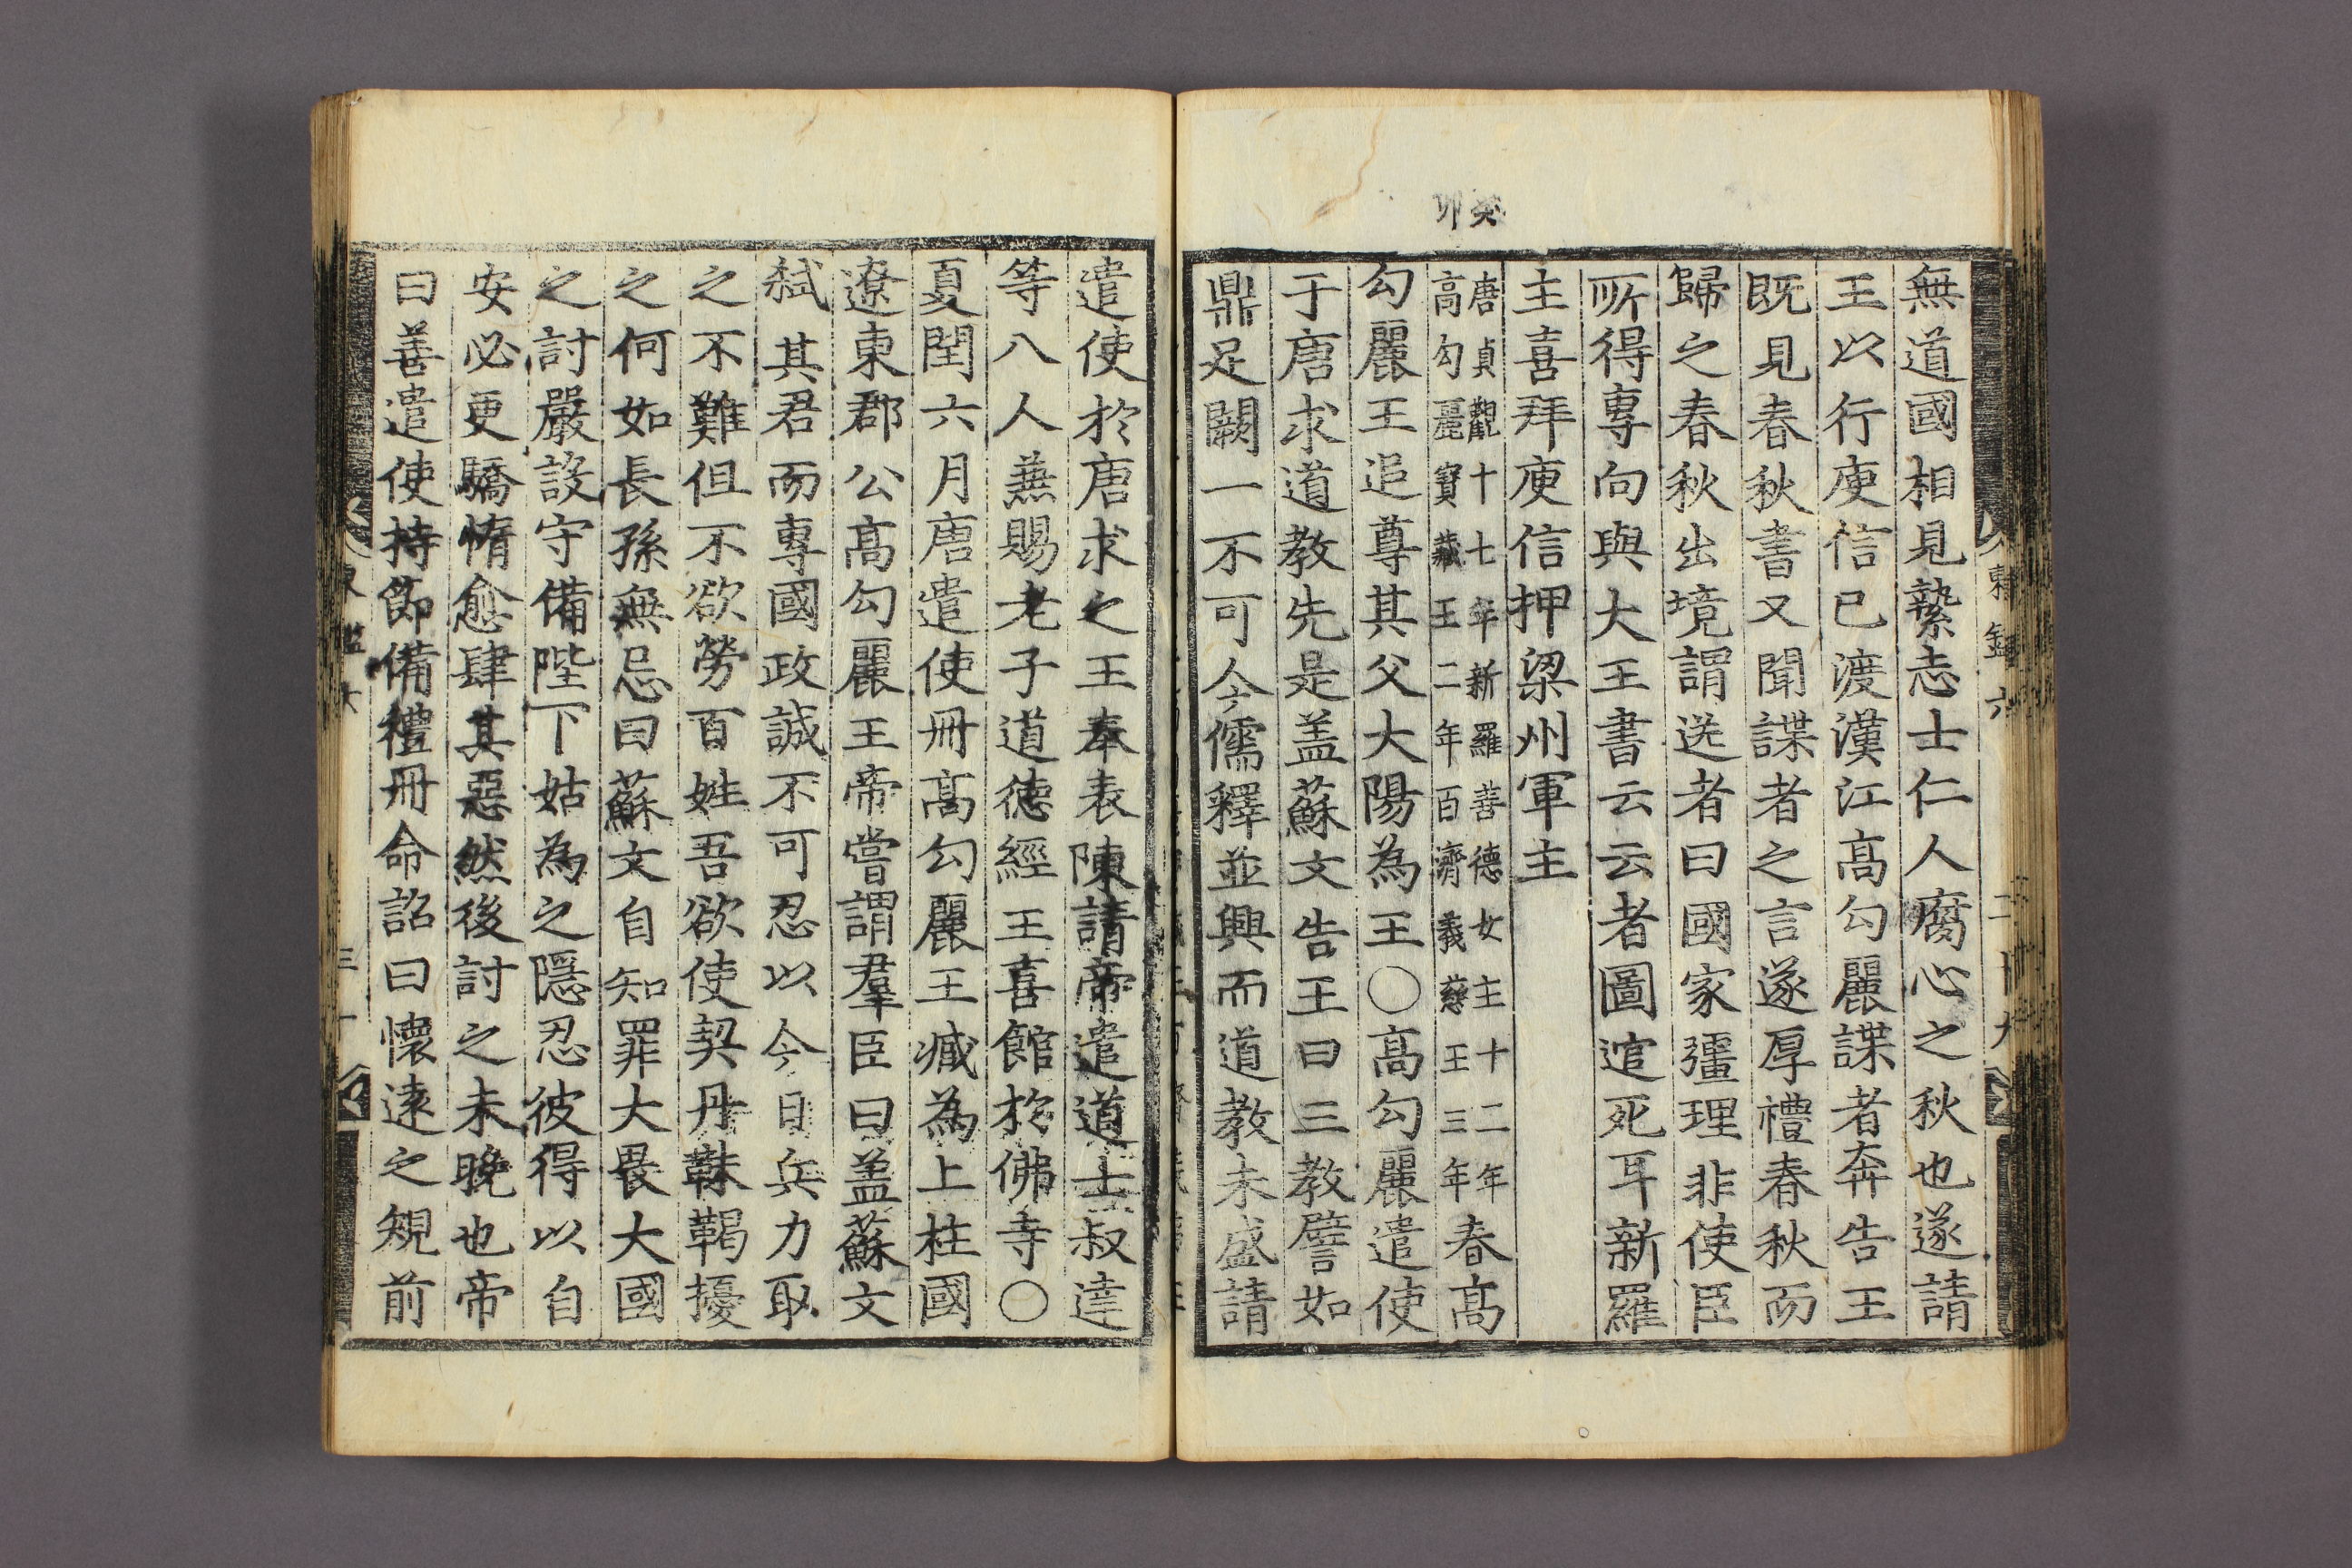 無道國相見縶志士仁人腐心之秋也遂請
王以行庾信已渡漢江高勾麗諜者奔告王
既見春秋書又聞諜者之言遂厚禮春秋而
歸之春秋出境謂送者曰國家彊理非使臣
所得專向與大王書云云者圖逭死耳新羅
主喜拜庾信押梁州軍主
癸卯
唐貞觀十七年新羅善德女主十二年
高勾麗寶藏王二年百濟義慈王三年
春高
勾麗王追尊其父大陽為王○高勾麗遣使
于唐求道教先是盖蘇文告王曰三教譬如
鼎足闕一不可今儒釋並興而道教未盛請
遣使於唐求之王奉表陳請帝遣道士叔達
等八人兼賜老子道德經王喜館於佛寺○
夏閏六月唐遣使冊高勾麗王臧為上柱國
遼東郡公高勾麗王帝嘗謂羣臣曰盖蘇文
弑其君而專國政誠不可忍以今日兵力取
之不難但不欲勞百姓吾欲使契丹靺鞨擾
之何如長孫無忌曰蘇文自知罪大畏大國
之討嚴設守備陛下姑為之隱忍彼得以自
安必更驕惰愈肆其惡然後討之未晚也帝
曰善遣使持節備禮冊命詔曰懷遠之規前